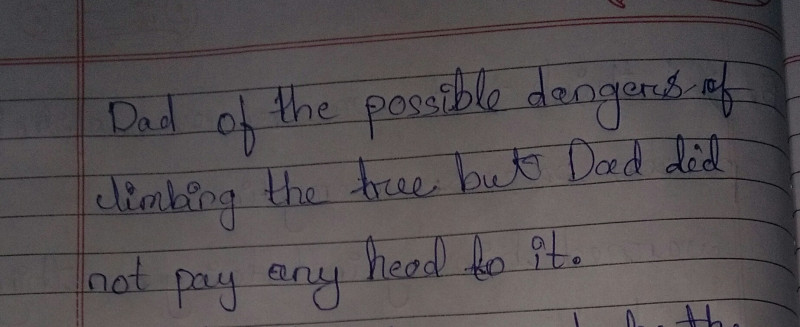 Dad of the possible dangers of
climbing the tree but Dad did
not pay any heed to it.
the